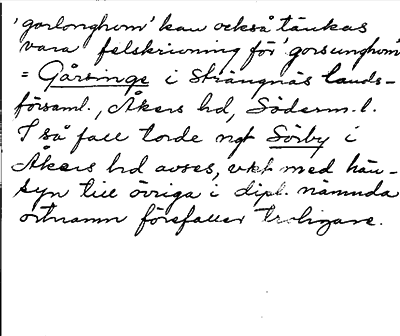 'gorlonghom' kan också tänkas
vara felskrivning för 'gorsunghom'
= Gårsinge i Strängnäs lands-
församl., Åkers hd, Söderm. l.
I så fall torde ngt Sörby i
Åkers hd avses, vkt med hän-
syn till övriga i dipl. nämnda
ortnamn förefaller troligare.